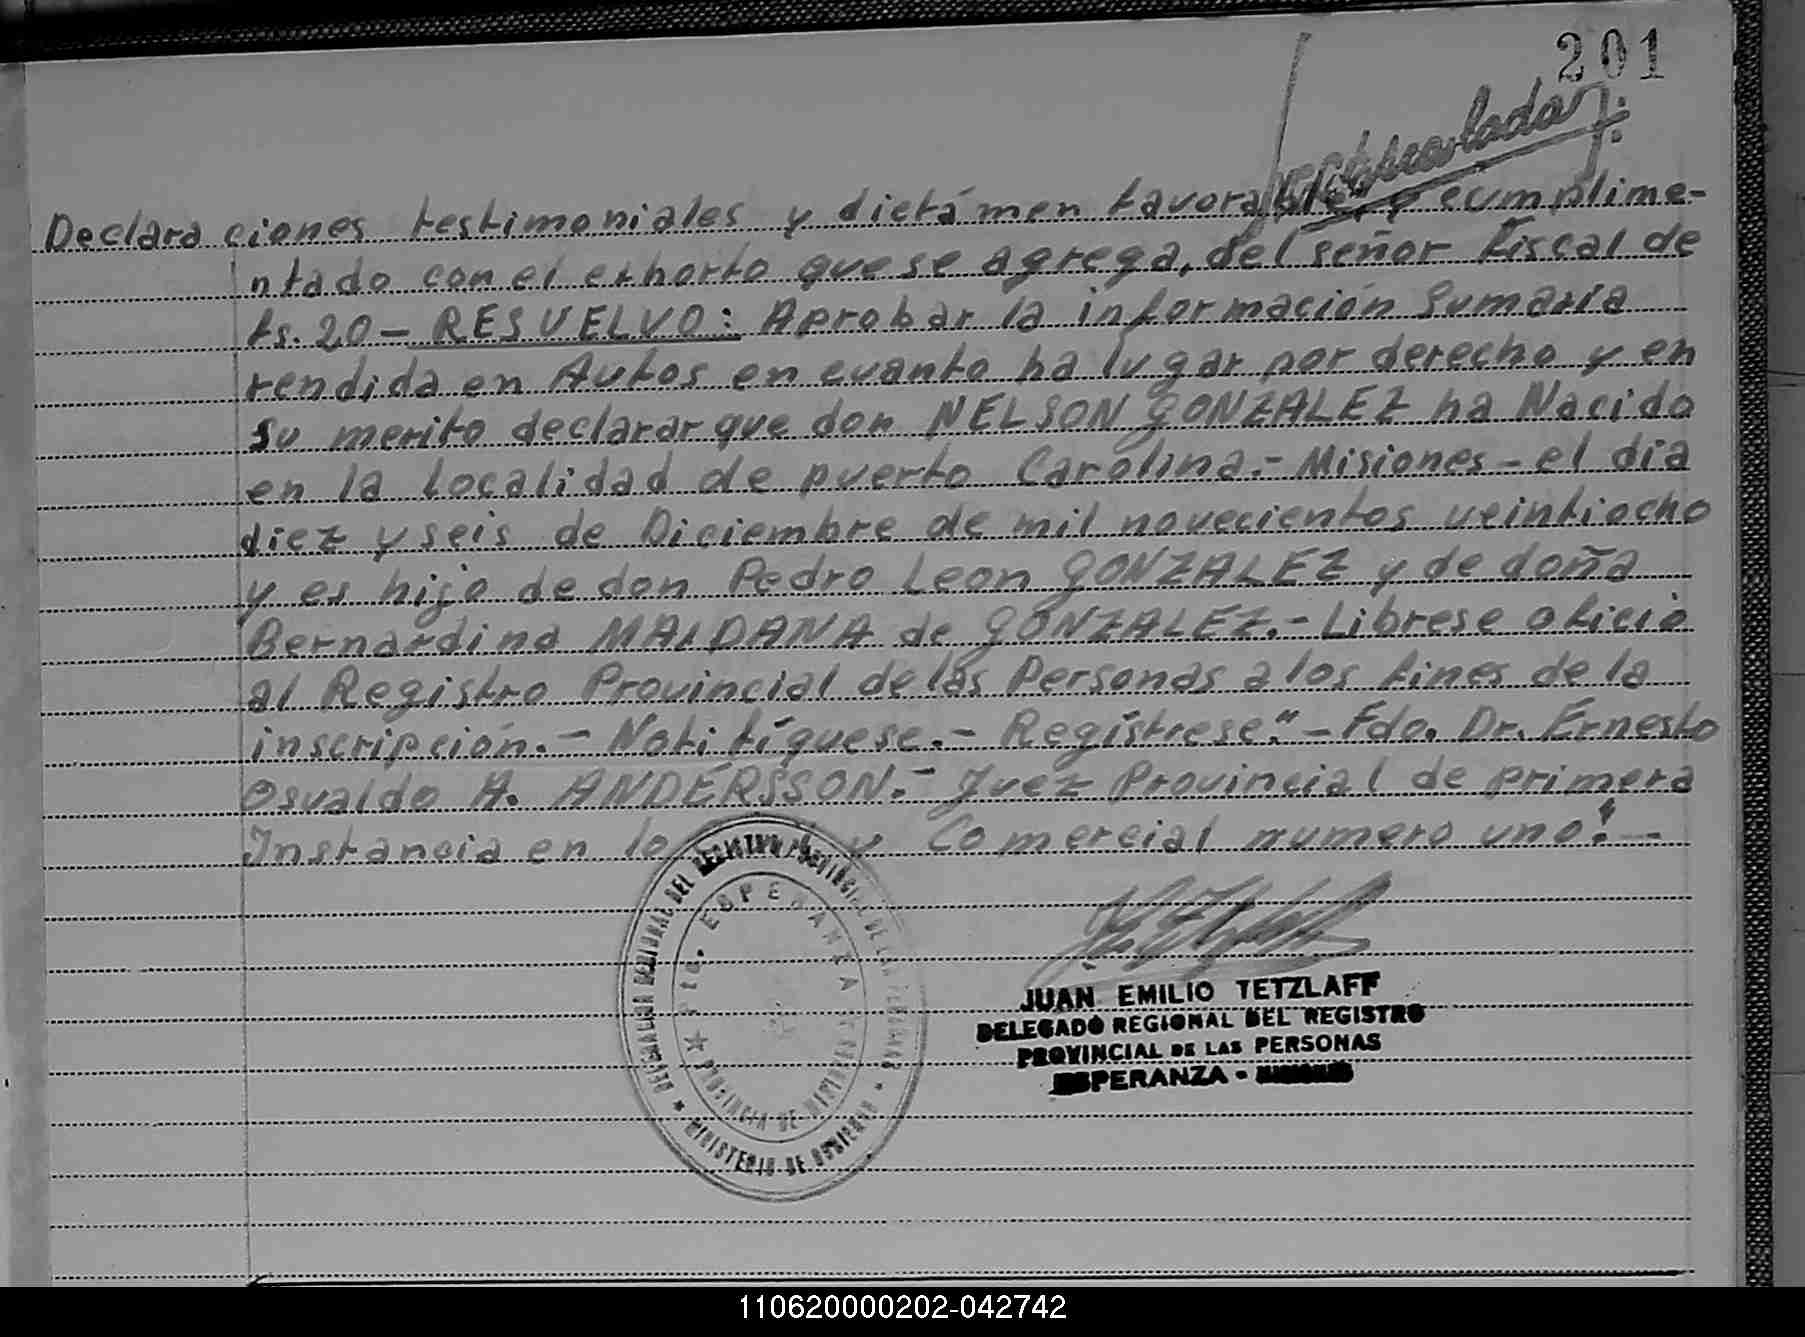 201
Declaraciones testimoniales y dictámen favorable, y cumplime-
ntado con el exhorto que se agrega, del señor Fiscal de
fs. 20 - RESUELVO: Aprobar la información Sumaria
rendida en Autos en cuanto ha lugar por derecho y en
su merito declarar que don NELSON GONZALEZ ha Nacido
en la localidad de puerto Carolina.- Misiones - el dia
diez y seis de Diciembre de mil novecientos veintiocho
y es hijo de don Pedro Leon GONZALEZ y de doña
Bernardina MALDANA de GONZALEZ.- Librese oficio
al Registro Provincial de las Personas a los fines de la
inscripción.- Notifíquese.- Regístrese".- Fdo. Dr. Ernesto
Osvaldo A. ANDERSSON.- Juez Provincial de primera
Instancia en lo y Comercial numero uno".-
DELEGACION REGIONAL DEL REGISTRO PROVINCIAL DE LAS PERSONAS
Pto. ESPERANZA
PROVINCIA DE MISIONES
MINISTERIO DE GOBIERNO
JUAN EMILIO TETZLAFF
DELEGADO REGIONAL DEL REGISTRO
PROVINCIAL DE LAS PERSONAS
ESPERANZA -
110620000202-042742